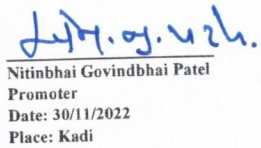 નીતિ. ગો. પટેલ.
Nitinbhai Govindbhai Patel
Promoter
Date: 30/11/2022
Place: Kadi